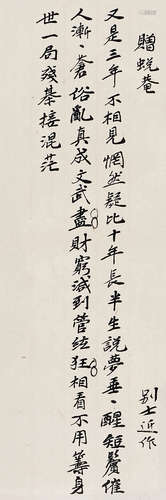 贈蛻菴
别士近作
又是三年不相見惘然疑比十年長半生説夢垂、醒短鬢催
人漸、蒼俗亂真成文武盡財窮減到管絃狂相看不用籌身
世一局殘棊接混茫